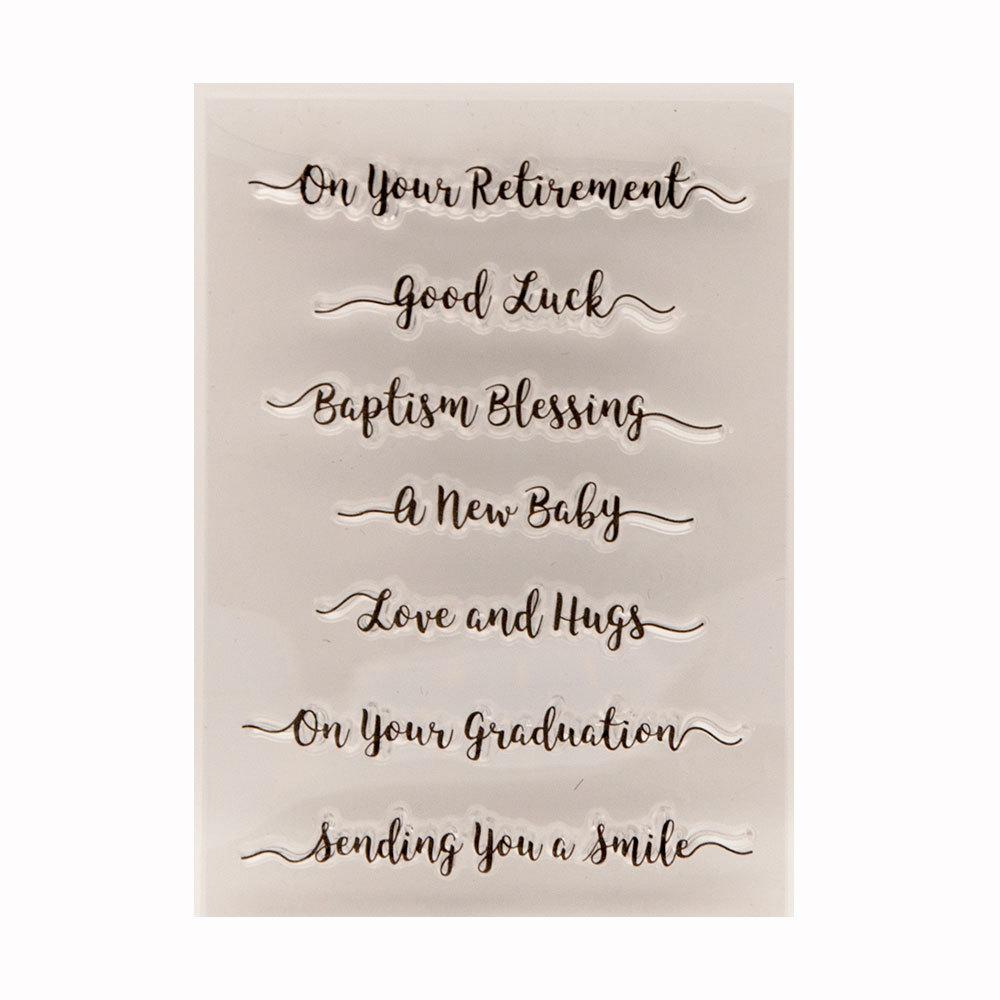 On Your Retirement
Good Luck
Baptism Blessing
A New Baby
Love and Hugs
On Your Graduation
Sending You a Smile